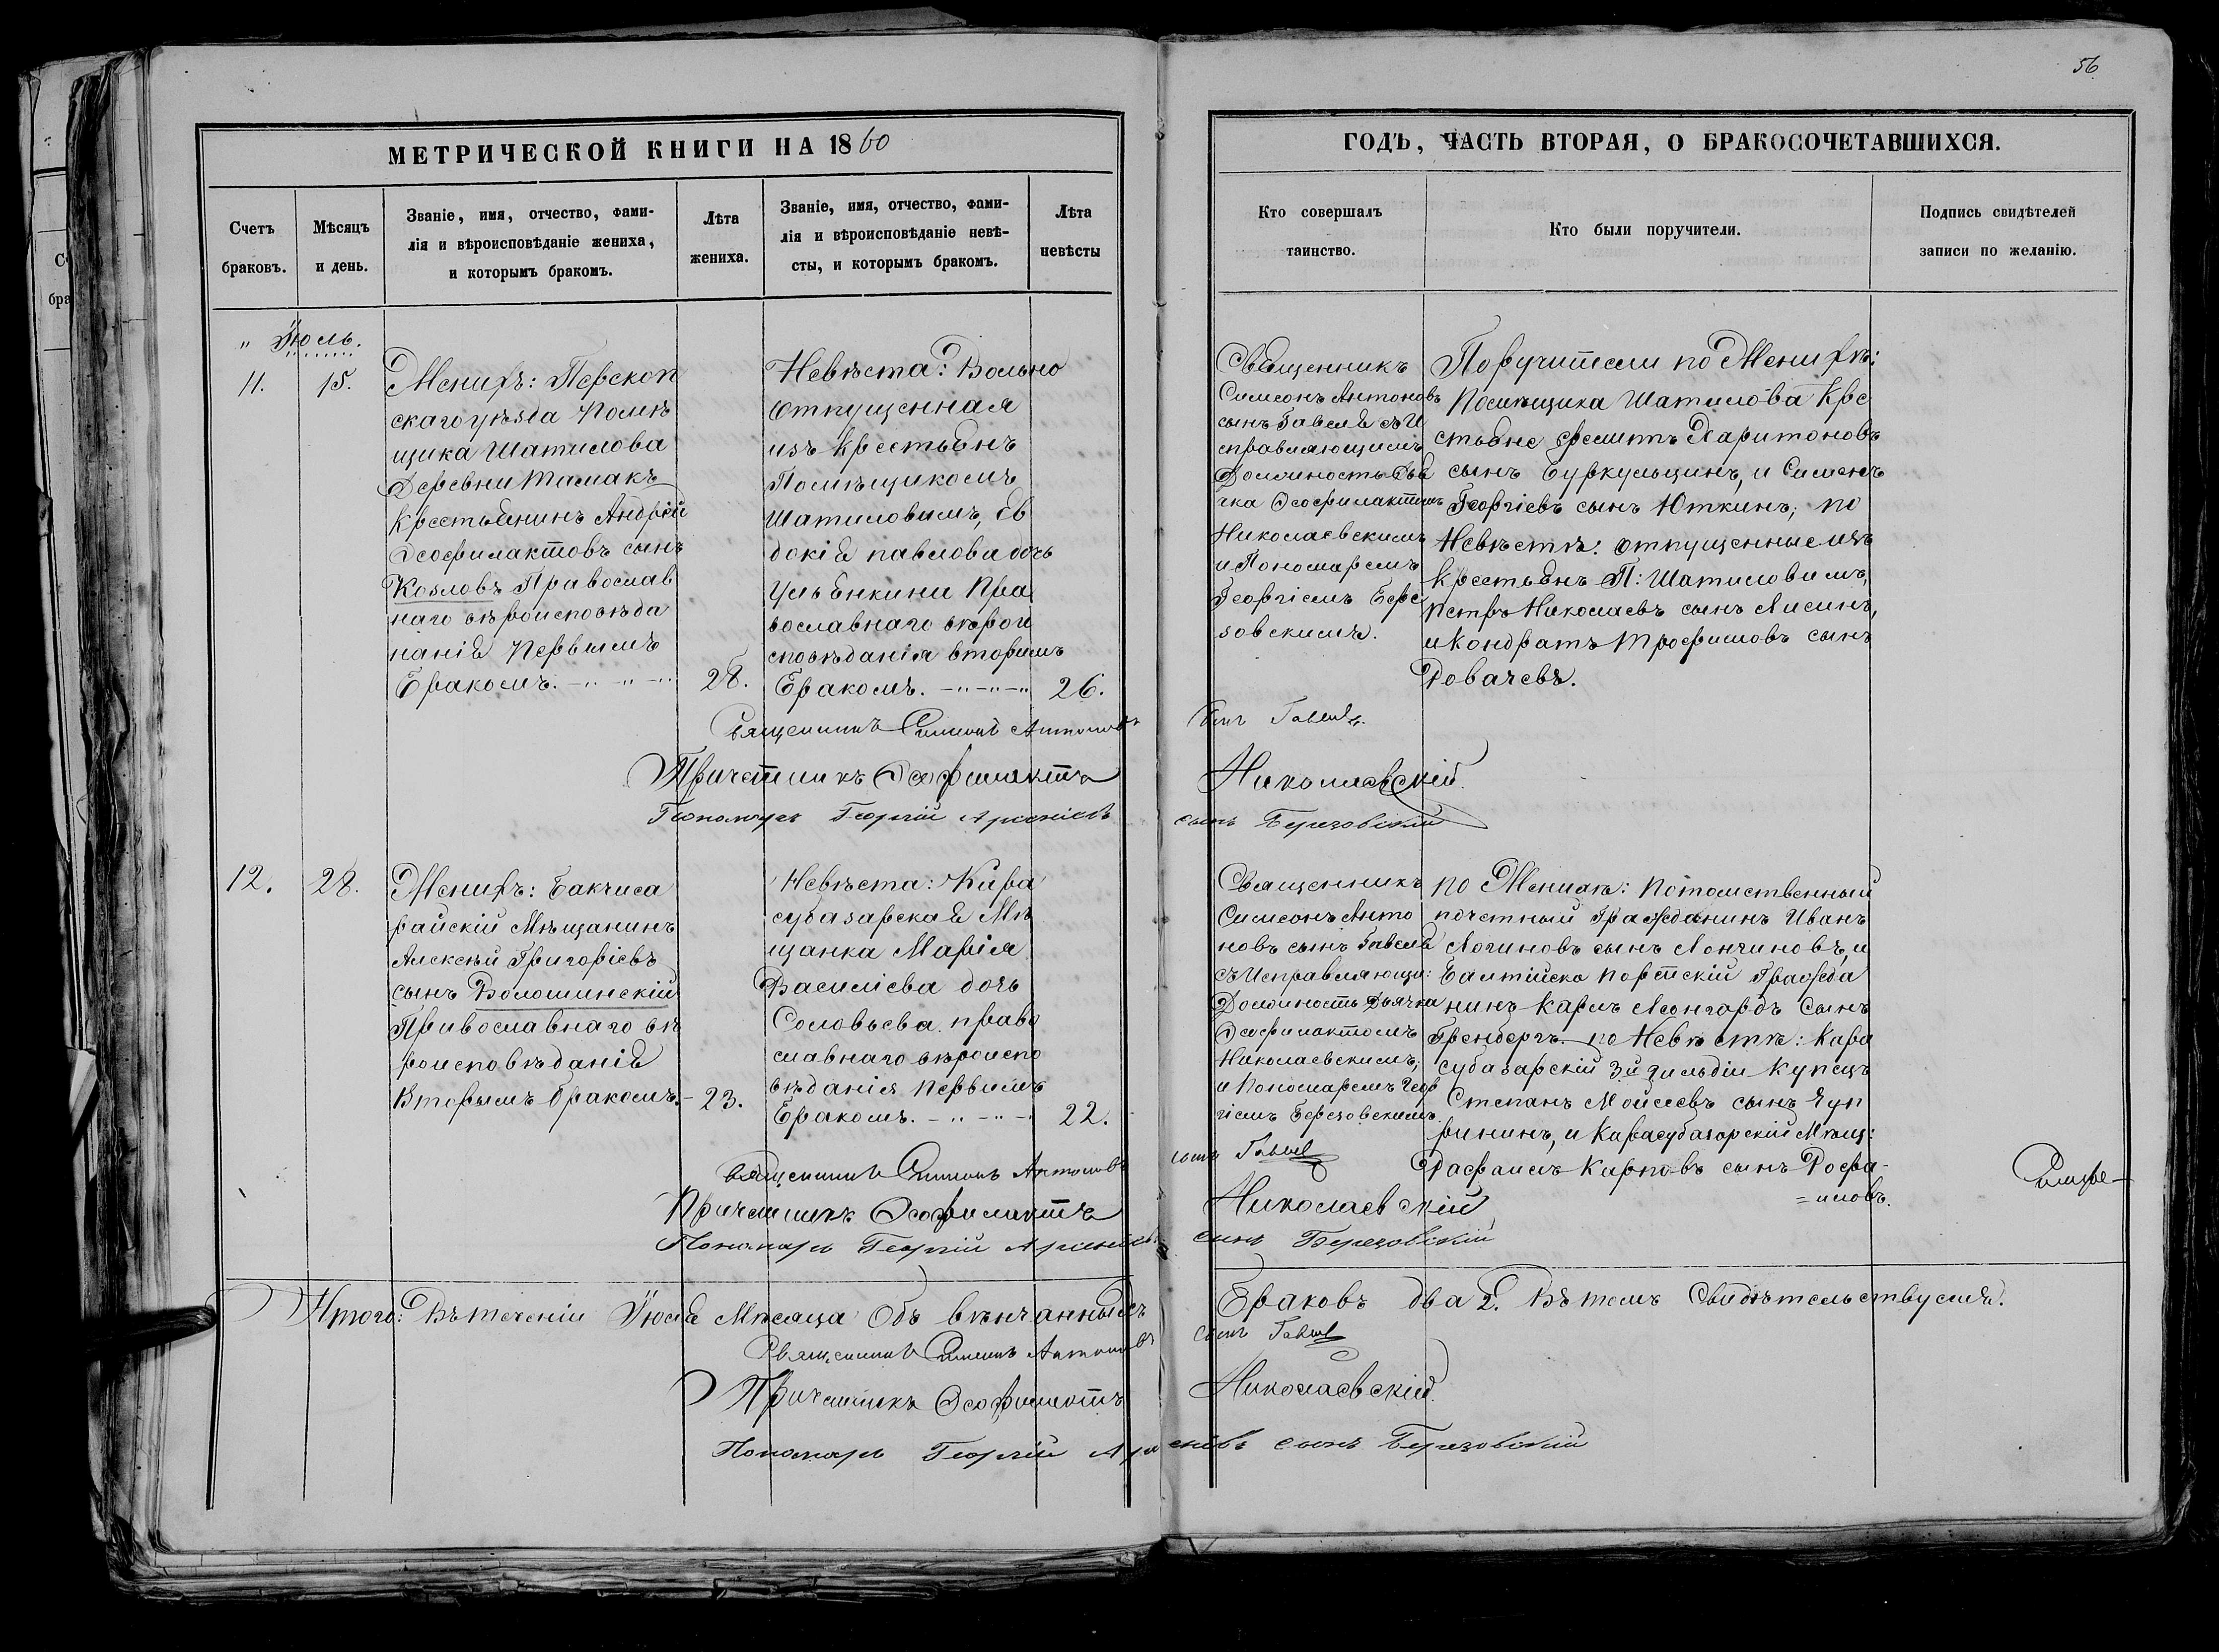 56
МЕТРИЧЕСКОЙ КНИГИ НА 1860
ГОДЪ, ЧАСТЬ ВТОРАЯ, О БРАКОСОЧЕТАВШИХСЯ.
Счетъ
браковъ.
Мѣсяцъ
и день.
Званіе, имя, отчество, фами-
лія и вѣроисповѣданіе жениха,
и которымъ бракомъ.
Лѣта
жениха.
Званіе, имя, отчество, фами-
лія и вѣроисповѣданіе невѣ-
сты, и которымъ бракомъ.
Лѣта
невѣсты
Кто совершалъ
таинство.
Кто были поручители.
Подпись свидѣтелей
записи по желанію.
" Июль.
11.
15.
Женихъ: Перекоп
скаго уѣзда Помѣ
щика Шатилова
Деревни Тамакъ
Крестьянинъ Андрей
Ѳеофилактовъ сынъ
Козловъ Православ
наго вѣроисповѣда
наніа Первымъ
Бракомъ.
28.
Невѣста: Вольно
отпущенная
изъ Крестьянъ
Помѣщикомъ
Шатиловымъ, Ев
докія павлова дочь
Ульянкини Пра
вославнаго вѣрои
сповѣданія вторымъ
Бракомъ.
26.
Священникъ
Симеонъ Антоновъ
сынъ Гавеля съ И
справляющимъ
Должность Дья
чка Ѳеофилактомъ
Николаевскимъ
и Пономаремъ
Георгіемъ Бере
зовскимъ.
Поручители по Женихѣ:
Помѣщика Шатилова Кре
стьяне Филипъ Харитоновъ
сынъ Буркульцинъ, и Симеонъ
Георгіевъ сынъ Юткинъ; по
Невѣстѣ: отпущенные изъ
Крестьянъ П: Шатиловымъ,
Петръ Николаевъ сынъ Лисинъ,
и Кондратъ Трофимовъ сынъ
Ровачевъ.
Священникъ Симеонъ Антоновъ сынъ Гавеля.
Причетникъ Ѳеофилактъ Николаевскій.
Пономарь Георгій Арсеніевъ сынъ Березовскій
12.
28.
Женихъ: Бакчиса
райскій Мѣщанинъ
Алексѣй Григоріевъ
сынъ Волошинскій
Православнаго вѣ
роисповѣданія
Вторымъ бракомъ.
23.
Невѣста: Кара
субазарская Мѣ
щанка Марія
Василіева дочь
Соловьева. право
славнаго вѣроиспо
вѣданія Первымъ
Бракомъ.
22.
Священникъ
Симеонъ Анто
новъ сынъ Гавеля
съ Исправляющи:
Должность Дьячка
Ѳеофилактомъ
Николаевскимъ,
и Пономаремъ Геор
гіемъ Березовскимъ.
по Женихѣ: Потомственный
почетный Гражданинъ Иванъ
Логиновъ сынъ Лончиновъ, и
Балтійско портскій Гражда
нинъ Карлъ Леонгардъ Сынъ
Гренбергъ. по Невѣстѣ: Кара
субазарскій 3й гильдіи Купецъ
Степанъ Мойсеевъ сынъ Чуп
ринъ, и Карасубазарскій Мѣщ:
Рафаилъ Карповъ сынъ Рофа-
=иловъ.
Священникъ Симеонъ Антоновъ сынъ Гавел
Причетникъ Ѳеофилактъ Николаевскій
Пономарь Георгій Арсеніевъ сынъ Березовскій
Итого: Въ теченіи Июля Мѣсяца Объ вѣнчанныхъ Браковъ два 2. Въ томъ Свидѣтельствуемъ.
Священникъ Симеонъ Антоновъ сынъ Гавел
Причетникъ Ѳеофилактъ Николаевскій.
Пономарь Георгій Арсеніевъ сынъ Березовскій